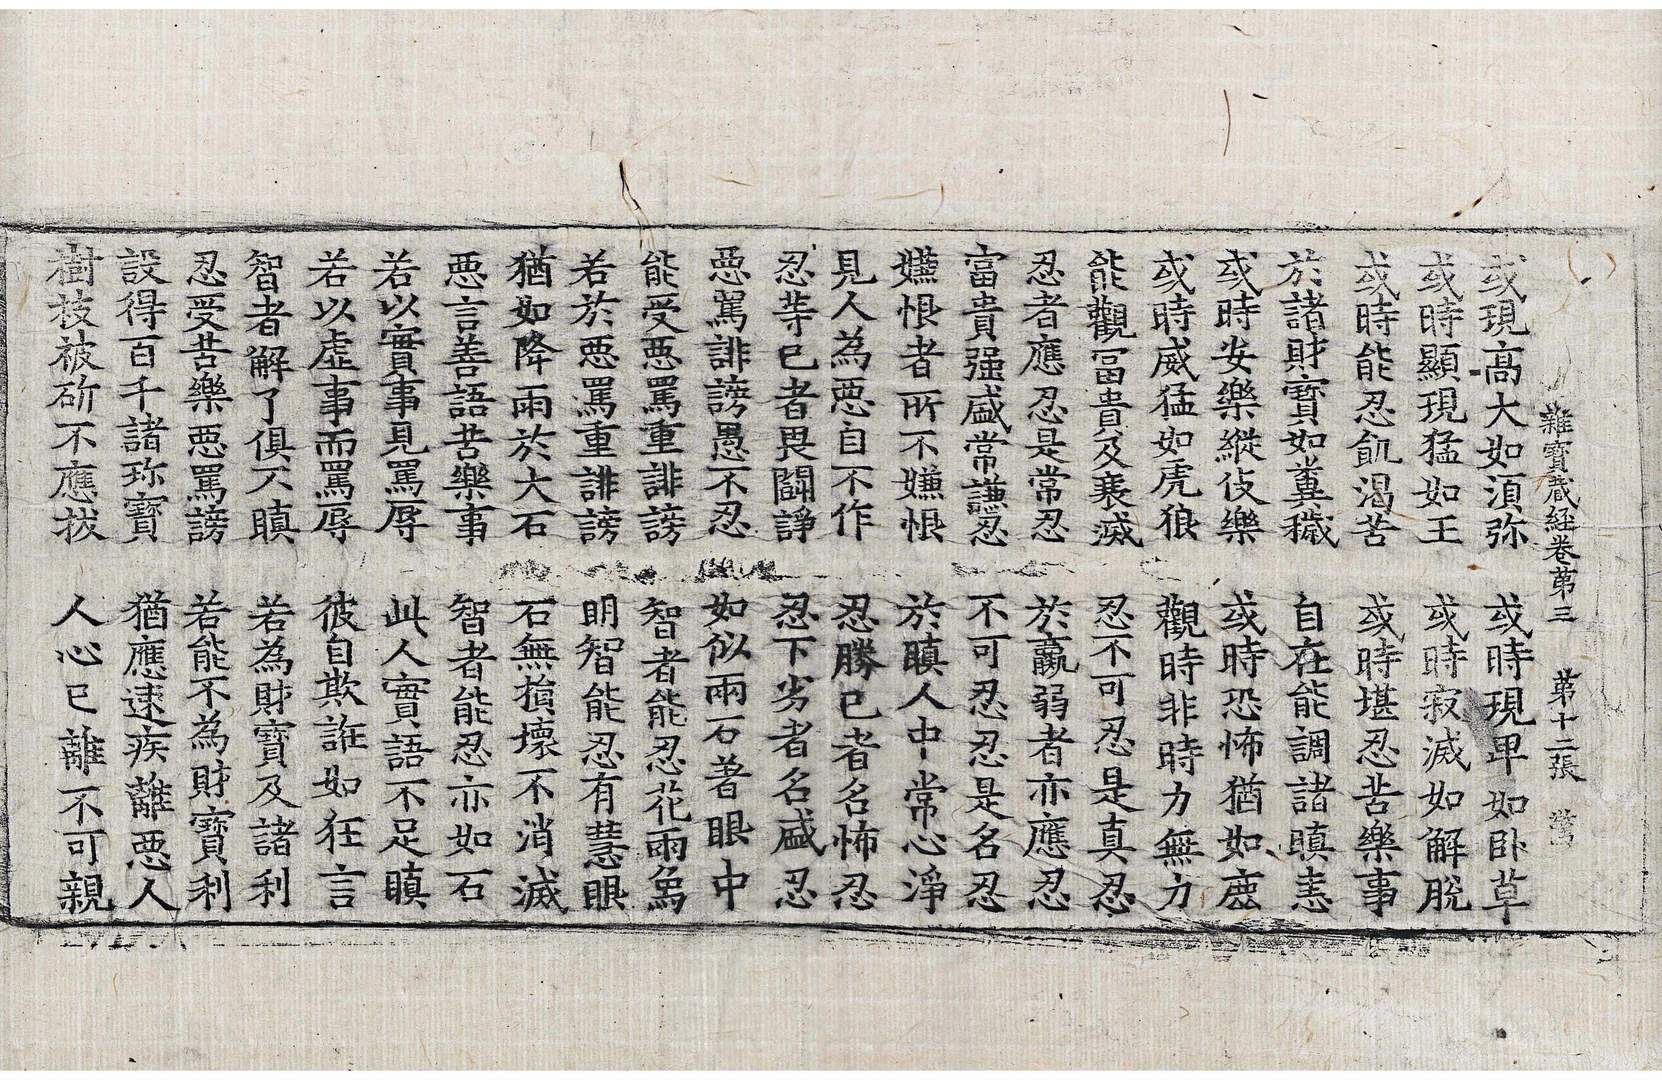 雜寶藏經卷第三　第十二張　鶩
或現高大如須弥　或時現卑如卧草
或時顯現猛如王　或時寂滅如解脫
或時能忍飢渴苦　或時堪忍苦樂事
於諸財寶如糞穢　自在能調諸瞋恚
或時安樂縱伎樂　或時恐怖猶如鹿
或時威猛如虎狼　觀時非時力無力
能觀冨貴及衰滅　忍不可忍是真忍
忍者應忍是常忍　於羸弱者亦應忍
富貴强盛常謙忍　不可忍忍是名忍
嬚恨者所不嬚恨　於瞋人中常心淨
見人為惡自不作　忍勝已者名怖忍
忍等已者畏鬪諍　忍下劣者名盛忍
惡罵誹謗愚不忍　如似兩石著眼中
能受惡罵重誹謗　智者能忍花雨象
若於惡罵重誹謗　明智能忍有慧眼
猶如降雨於大石　石無損壞不消滅
惡言善語苦樂事　智者能忍亦如石
若以實事見罵辱　此人實語不足瞋
若以虛事而罵辱　彼自欺誑如狂言
智者解了俱不瞋　若為財寶及諸利
忍受苦樂惡罵謗　若能不為財寶利
設得百千諸珎寶　猶應速疾離惡人
樹枝被斫不應拔　人心已離不可親